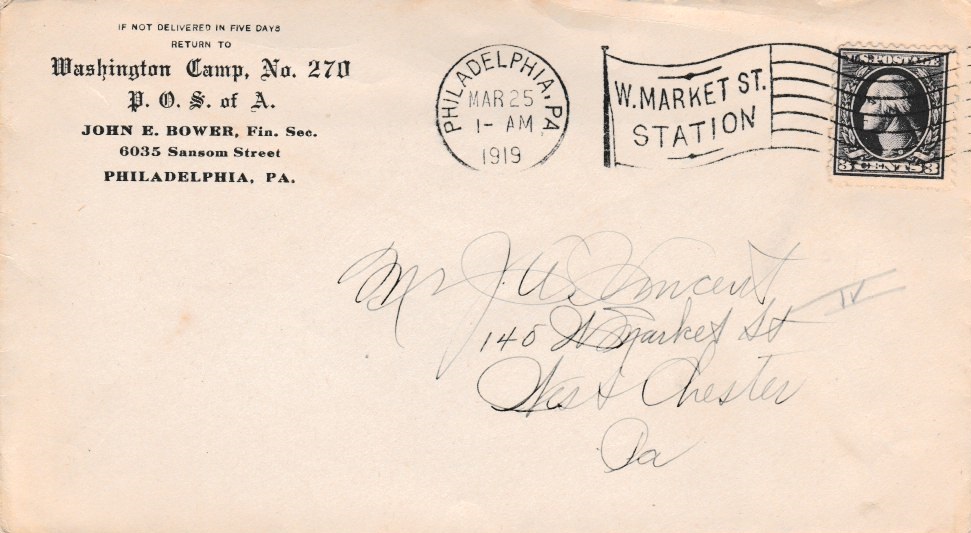 IF NOT DELIVERED IN FIVE DAYS
RETURN TO
Washington Camp, No. 270
P. O. S. of A.
JOHN E. BOWER, Fin. Sec.
6035 Sansom Street
PHILADELPHIA, PA.
PHILADELPHIA, PA.
MAR 25
1- AM
1919
W. MARKET ST.
STATION
U.S. POSTAGE
3 CENTS 3
Mr J. W. Vincent
140 W Market St
West Chester
Pa
IV